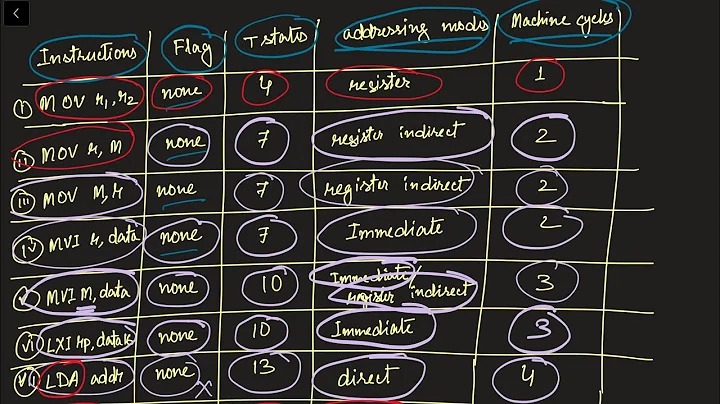 Instructions Flag T states addressing modes Machine cycles
(i) MOV r1, r2 none 4 register 1
(ii) MOV r, M none 7 register indirect 2
(iii) MOV M, r none 7 register indirect 2
(iv) MVI r, data none 7 Immediate 2
(v) MVI M, data none 10 Immediate/
register indirect 3
(vi) LXI rp, data16 none 10 Immediate 3
(vii) LDA addr none 13 direct 4
X